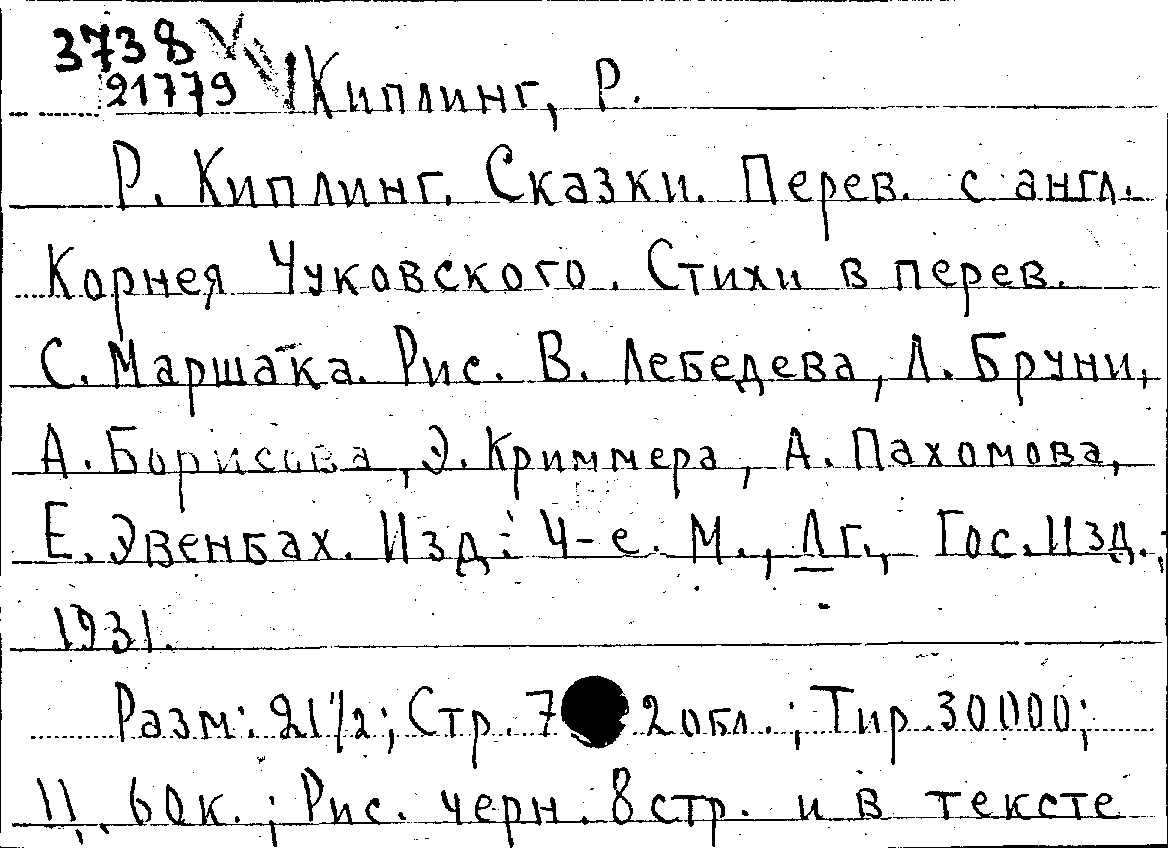 3738
21779 Киплинг, Р.
Р. Киплинг. Сказки. Перев. с англ.
Корнея Чуковского. Стихи в перев.
С. Маршака. Рис. В. Лебедева, Л. Бруни,
А. Борисова, Э. Криммера, А. Пахомова,
Е. Эвенбах. Изд: 4-е. М., Лг., Гос. Изд.,
1931.
Разм: 21 1/2; Стр. 7 2 обл.; Тир. 30000;
Ц. 60к.; Рис. черн. 8 стр. и в тексте